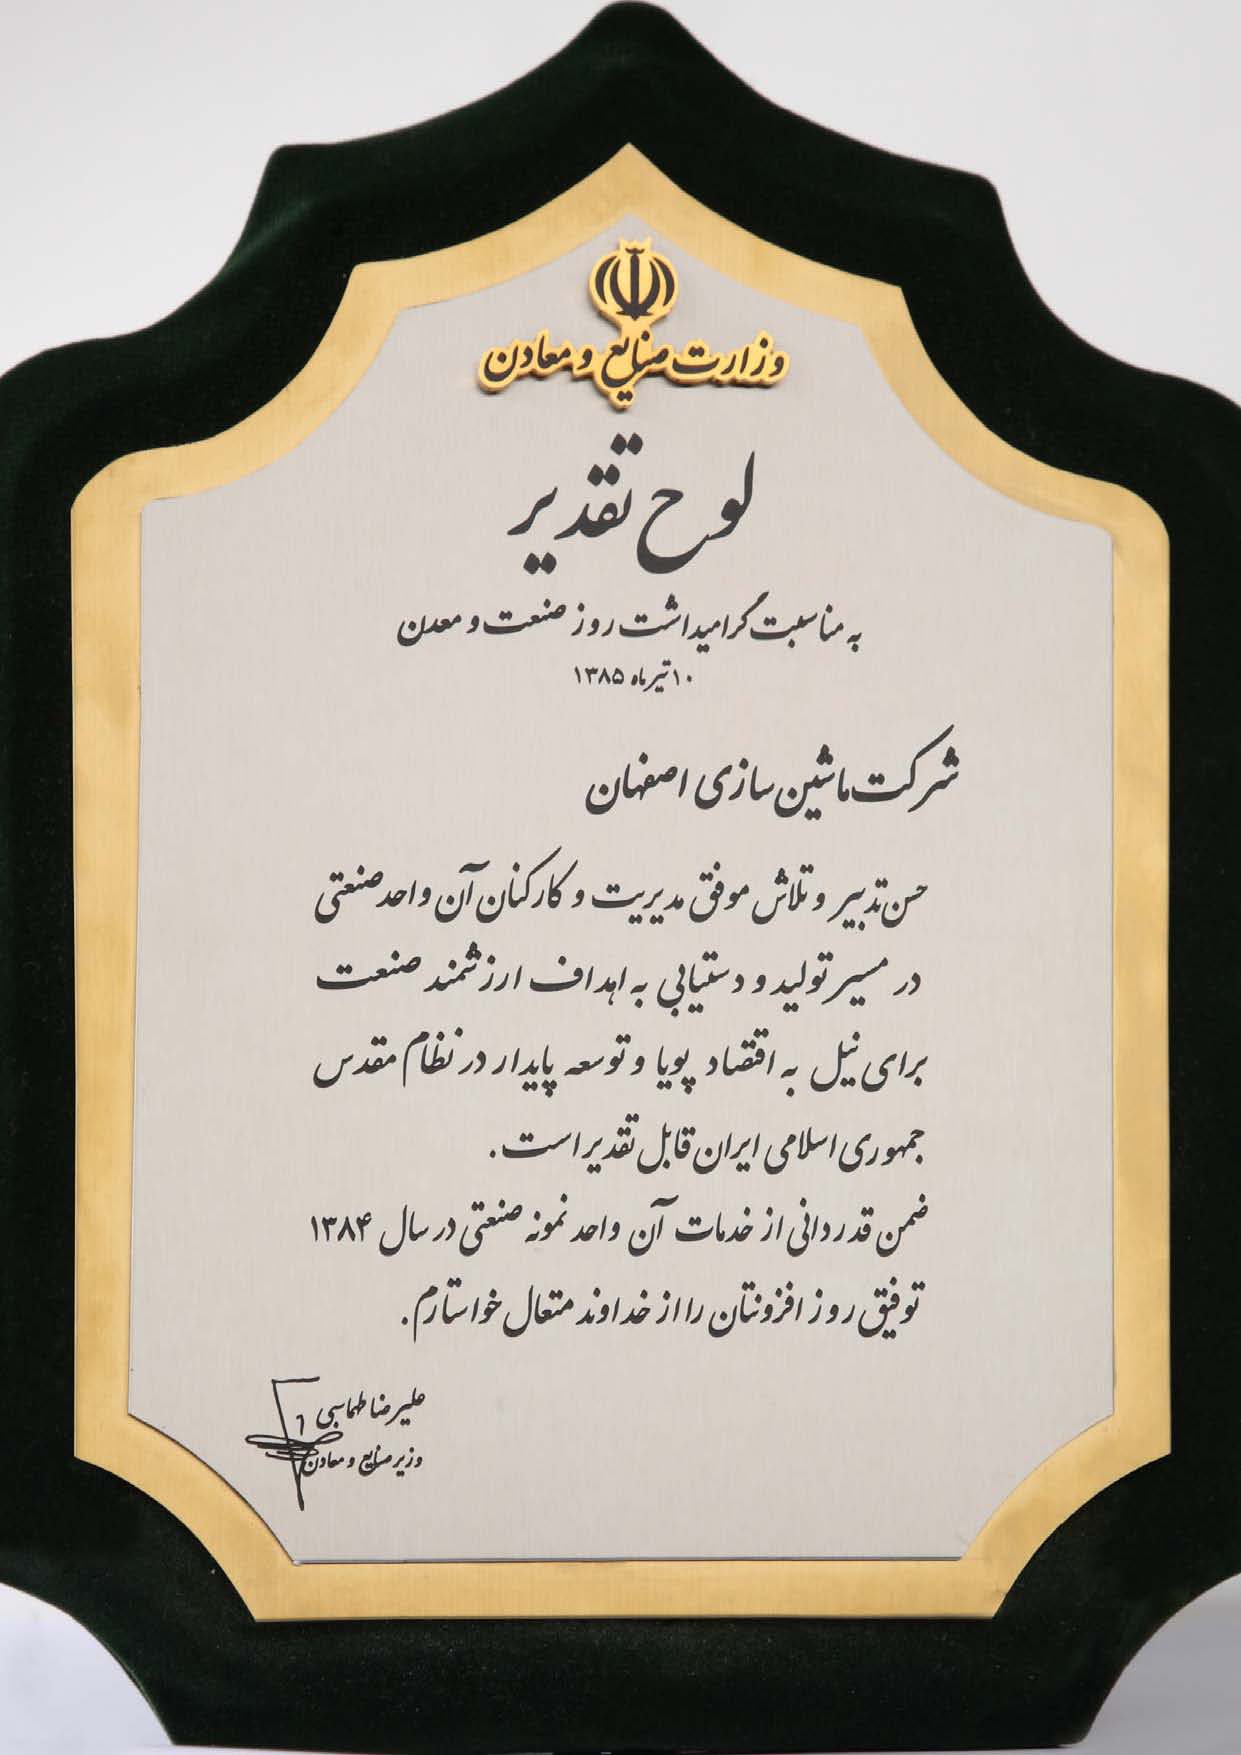 وزارت صنایع و معادن
لوح تقدیر
به مناسبت گرامیداشت روز صنعت و معدن
۱۰ تیر ماه ۱۳۸۵
شرکت ماشین سازی اصفهان
حسن تدبیر و تلاش موفق مدیریت و کارکنان آن واحد صنعتی
در مسیر تولید و دستیابی به اهداف ارزشمند صنعت
برای نیل به اقتصاد پویا و توسعه پایدار در نظام مقدس
جمهوری اسلامی ایران قابل تقدیر است.
ضمن قدردانی از خدمات آن واحد نمونه صنعتی در سال ۱۳۸۴
توفیق روز افزونتان را از خداوند متعال خواستارم.
علیرضا طهماسبی
وزیر صنایع و معادن